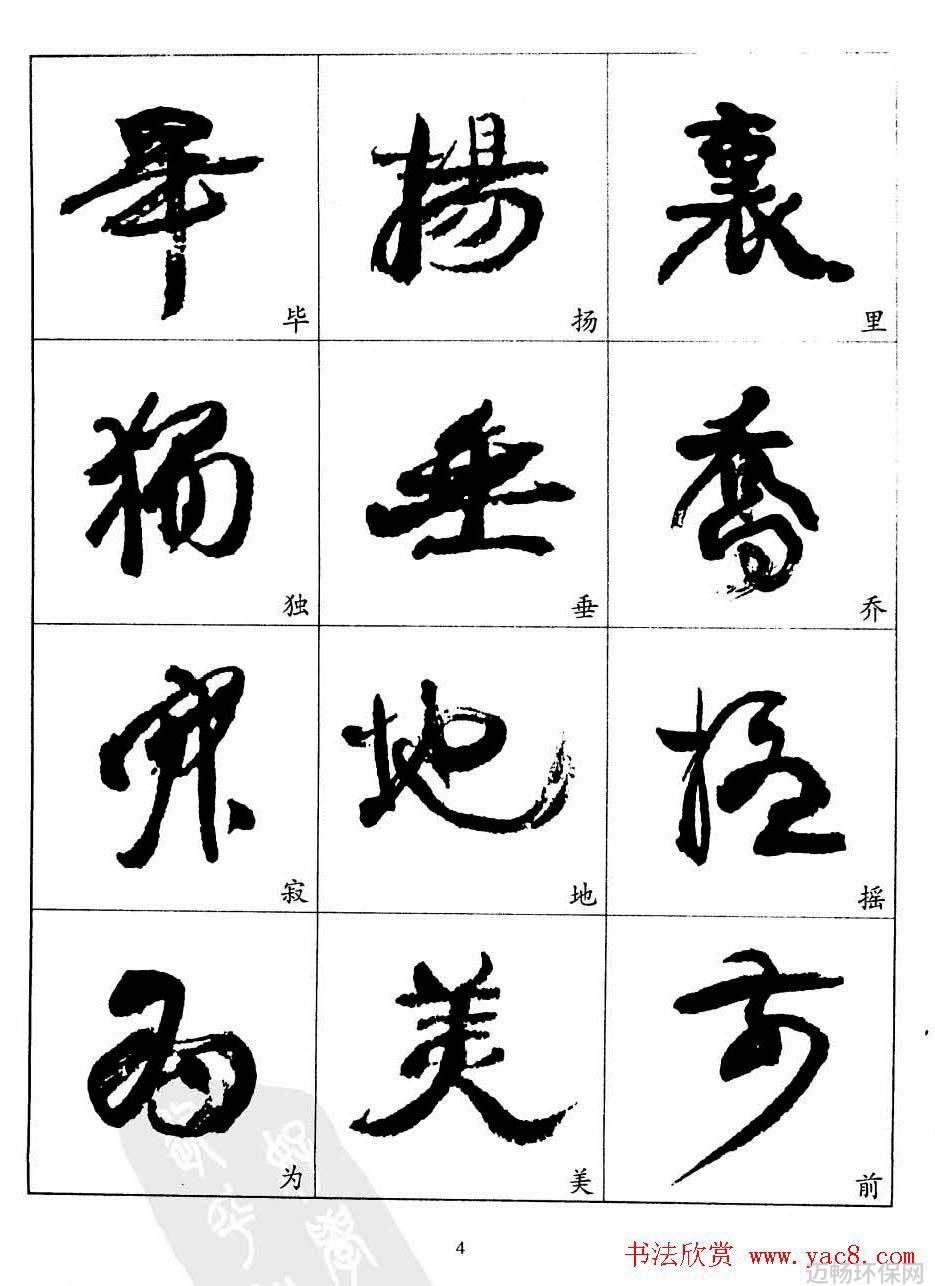 畢 揚 裏
毕 扬 里
獨 垂 喬
独 垂 乔
寂 地 摇
寂 地 摇
為 美 前
为 美 前
4
书法欣赏 www.yac8.com
迈畅环保网